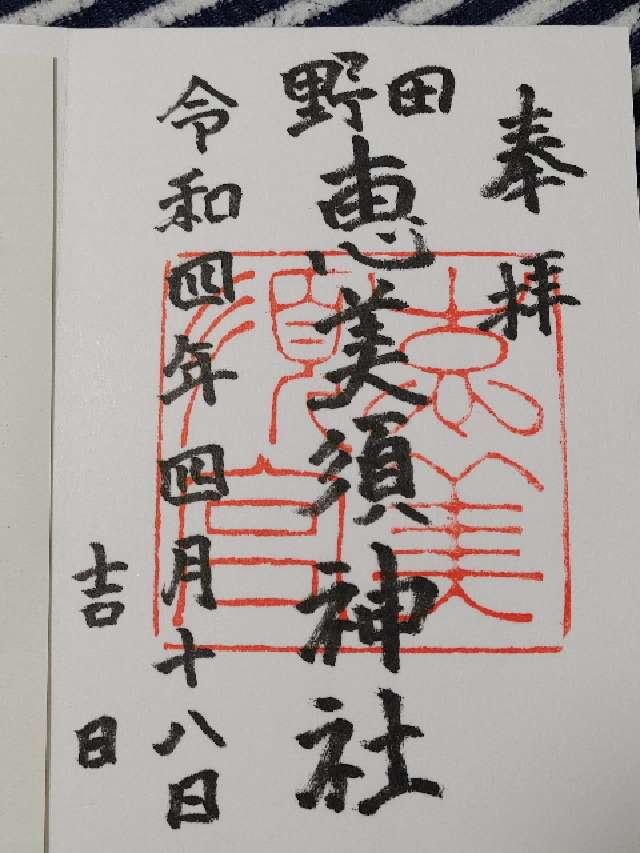 奉拝
野田
恵美須神社
恵美須宮
令和四年四月十八日
吉日